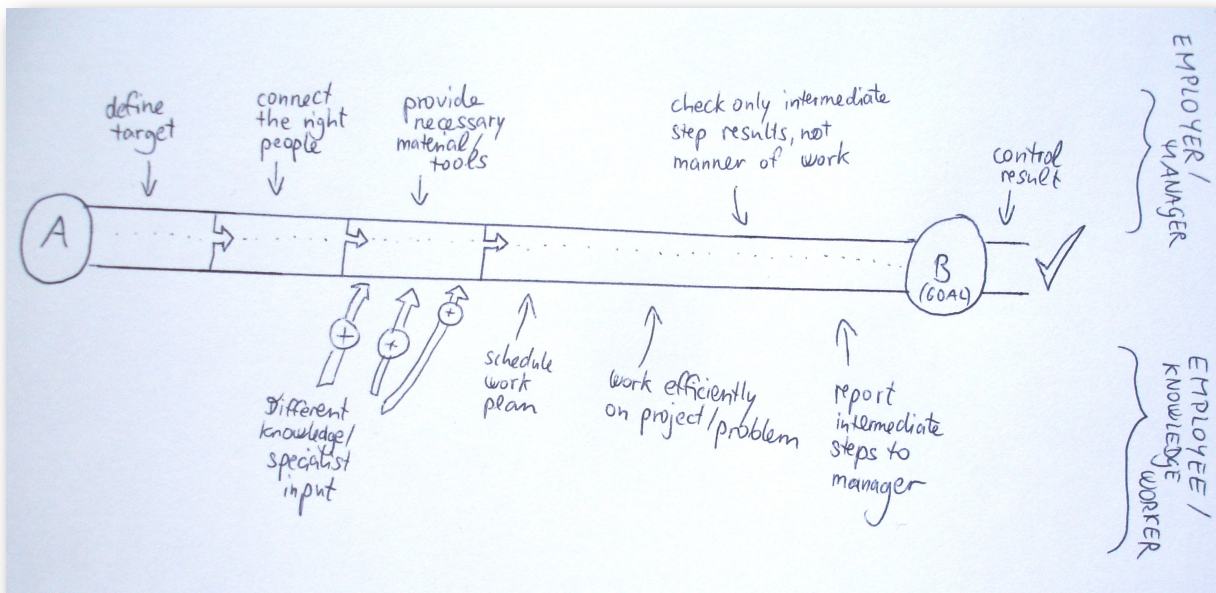 define
target
connect
the right
people
provide
necessary
material/
tools
check only intermediate
step results, not
manner of work
control
result
EMPLOYER/
MANAGER
A
B
(GOAL)
+
+
+
Different
knowledge/
specialist
input
schedule
work
plan
work efficiently
on project/problem
report
intermediate
steps to
manager
EMPLOYEE/
KNOWLEDGE
WORKER